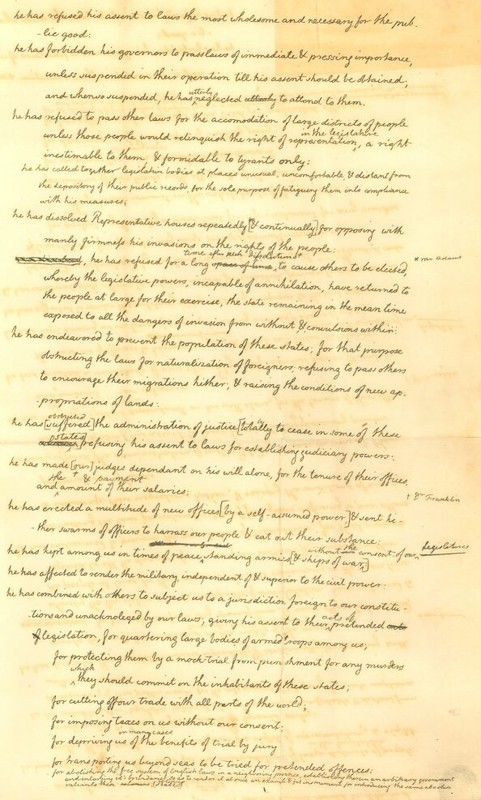 he has refused his assent to laws the most wholesome and necessary for the pub-
-lic good:
he has forbidden his governors to pass laws of immediate & pressing importance,
unless suspended in their operation till his assent should be obtained;
and when so suspended, he has utterly neglected utterly to attend to them.
he has refused to pass other laws for the accomodation of large districts of people
unless those people would relinquish the right of representation in the legislature, a right
inestimable to them, & formidable to tyrants only:
he has called together legislative bodies at places unusual, uncomfortable & distant from
the depository of their public records for the sole purpose of fatiguing them into compliance
with his measures;
he has dissolved Representative houses repeatedly [& continually] for opposing with
manly firmness his invasions on the rights of the people:
he has refused for a long time after such dissolutions space of time, to cause others to be elected,
* Mr Adams
whereby the legislative powers, incapable of annihilation, have returned to
the people at large for their exercise, the state remaining in the mean time
exposed to all the dangers of invasion from without & convulsions within:
he has endeavored to prevent the population of these states; for that purpose
obstructing the laws for naturalization of foreigners; refusing to pass others
to encourage their migrations hither; & raising the conditions of new ap-
-propriations of lands:
he has [suffered] obstructed the administration of justice [totally to cease in some of these
states] refusing his assent to laws for establishing judiciary powers:
he has made [our] judges dependant on his will alone, for the tenure of their offices,
the & payment
and amount of their salaries:
† Dr Franklin
he has erected a multitude of new offices [by a self-assumed power] & sent hi-
-ther swarms of officers to harrass our people & eat out their substance:
he has kept among us in times of peace, standing armies [& ships of war] without the consent of our legislatures
he has affected to render the military, independent of & superior to the civil power:
he has combined with others to subject us to a jurisdiction foreign to our constitu-
-tions and unacknoleged by our laws; giving his assent to their acts of pretended acts
of legislation, for quartering large bodies of armed troops among us;
for protecting them by a mock-trial from punishment for any murders
which they should commit on the inhabitants of these states;
for cutting off our trade with all parts of the world;
for imposing taxes on us without our consent;
for depriving us in many cases of the benefits of trial by jury
for transporting us beyond seas to be tried for pretended offences:
for abolishing the free system of English laws in a neighboring province, establishing therein an arbitrary government
and enlarging it's boundaries so as to render it at once an example & fit instrument for introducing the same absolute
rule into these colonies